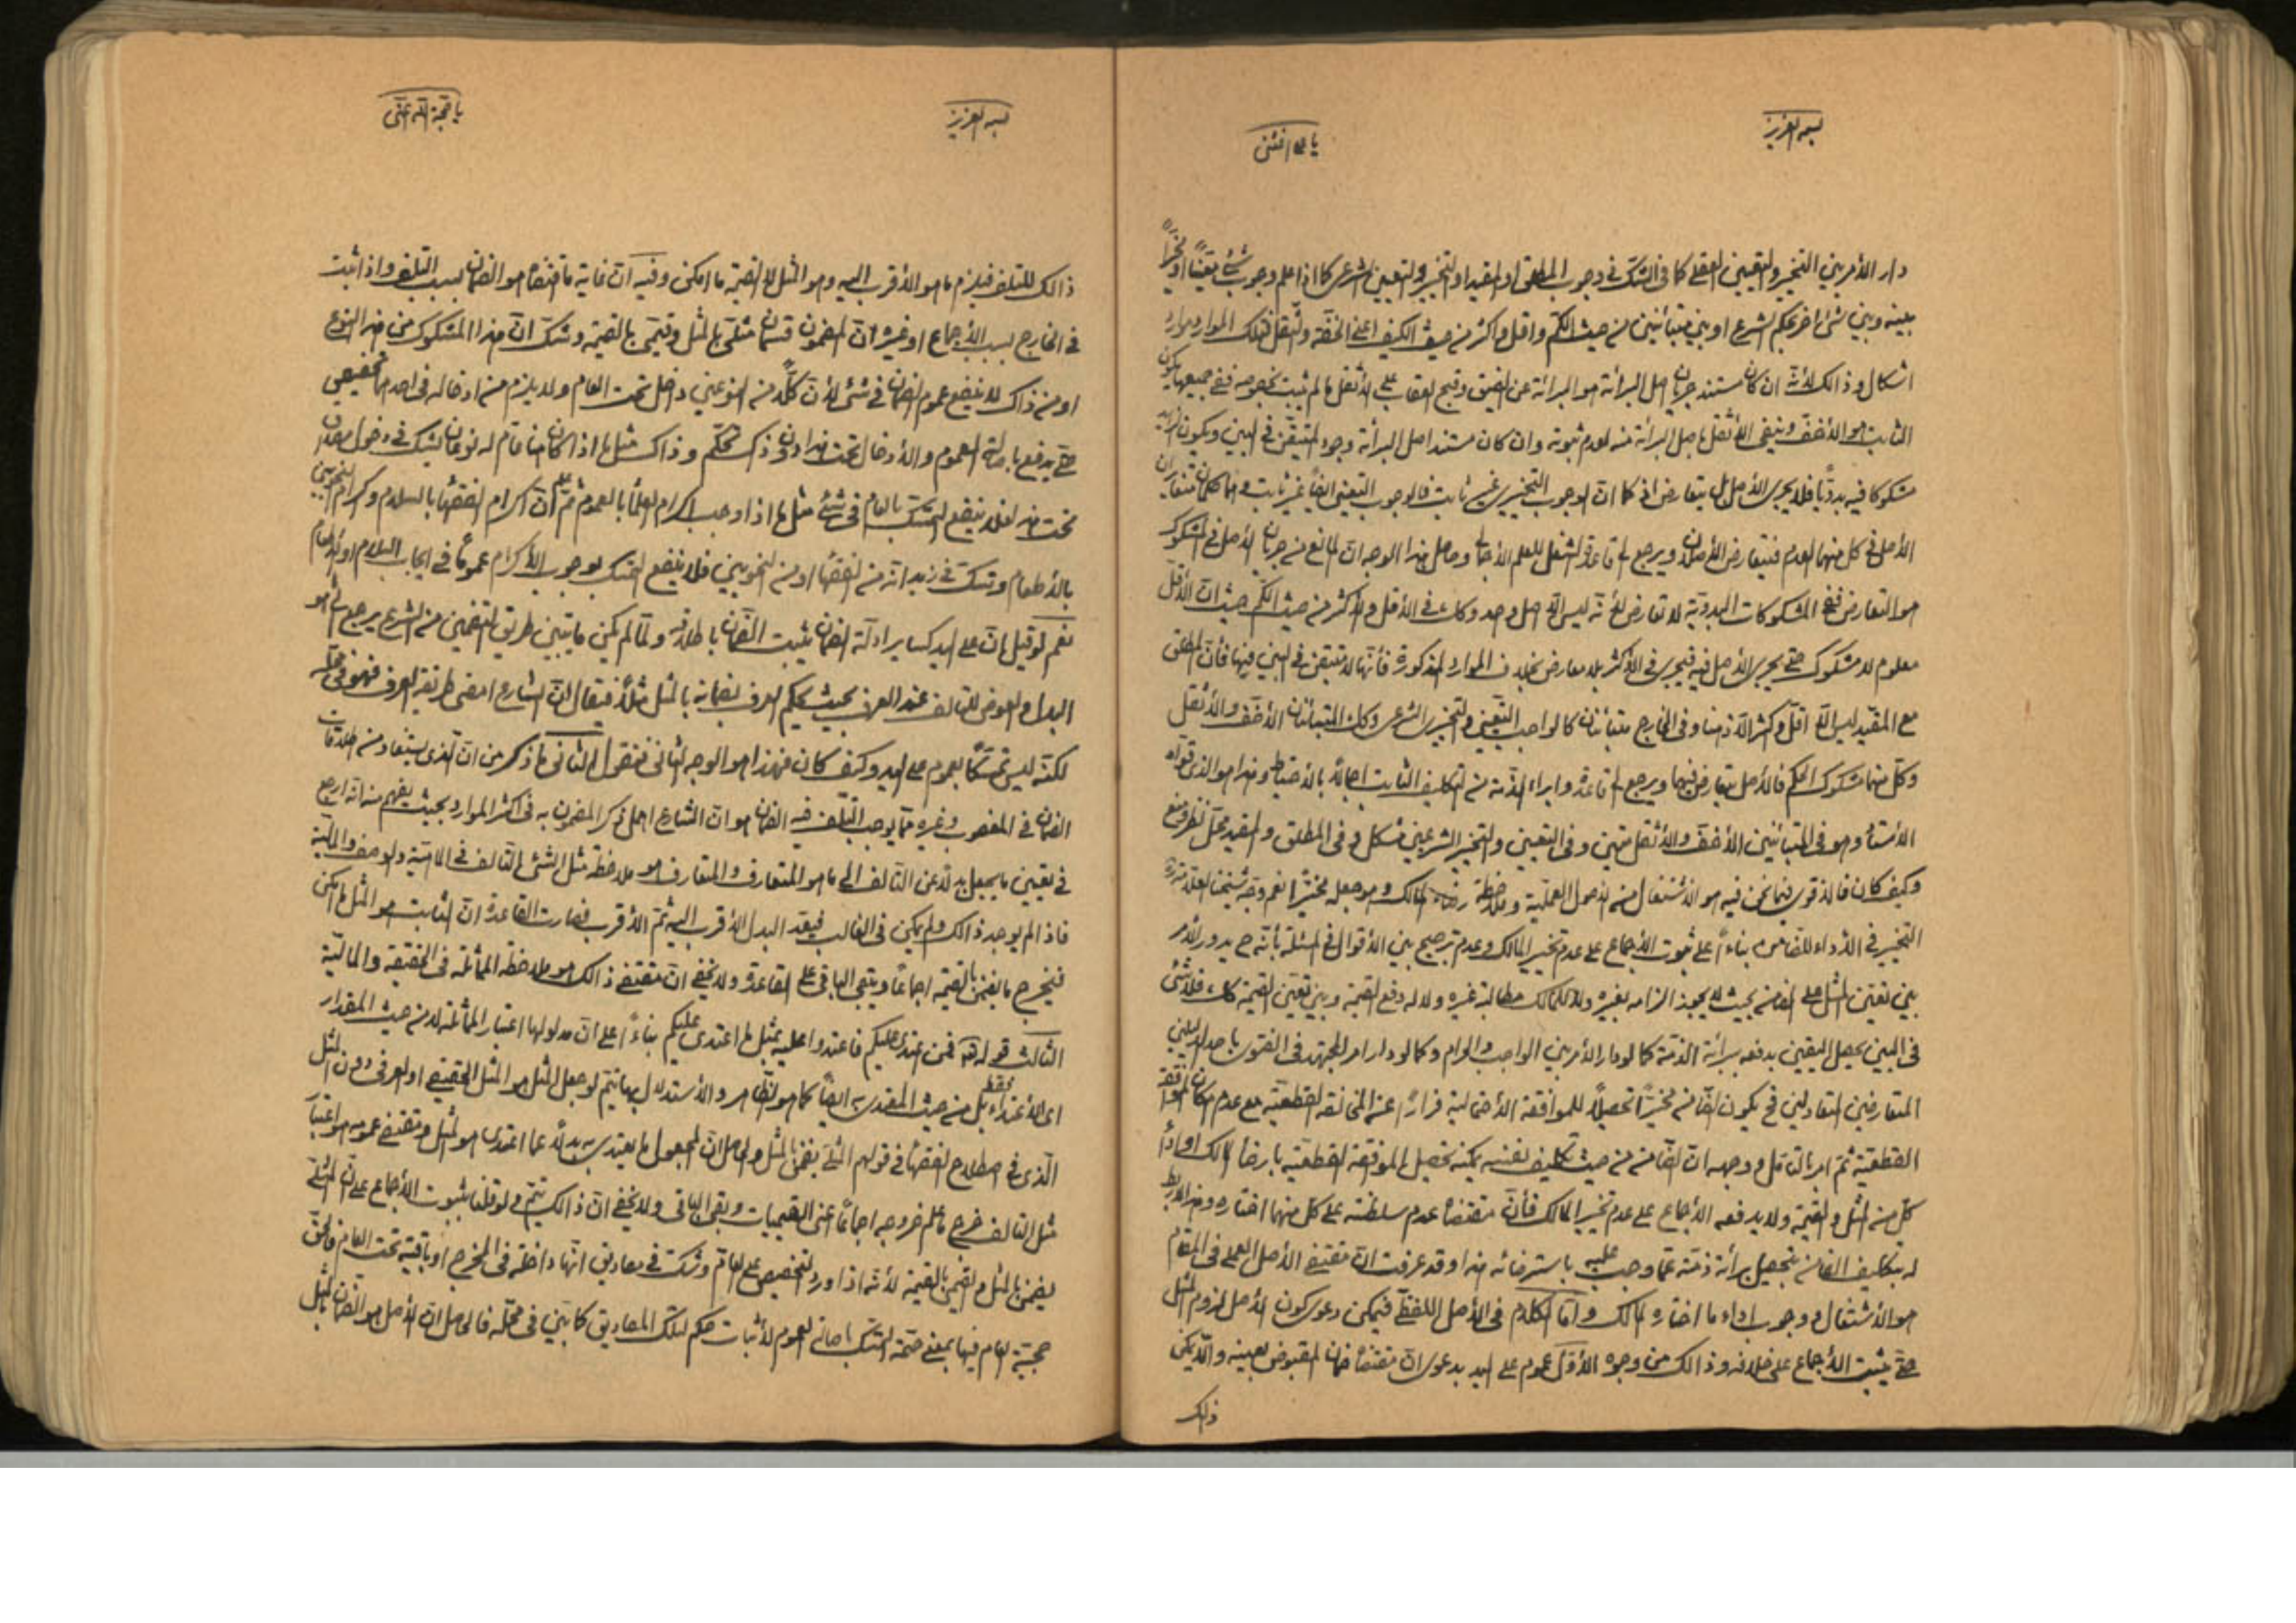 بسمه العزيز
يا الله اغثنى
دار الأمر بين التخيير والتعيين العقلى كما فى الشك فى وجوب المطلق او المقيد او التخيير والتعيين الشرعى كما اذا علم وجوب شئ معينا او مخيرا
بينه وبين شئ اخر بحكم الشرع او بين متبائنين من حيث الكم واقل واكثر من حيث الكيف اعنى الخفة والثقل فتلك الموارد موارد
اشكال وذالك لأنه ان كان مستند جريان اصل البرائة هو البرائة عن الضيق وقبح العقاب على الأثقل ما لم يثبت بخصوصه ففى جميعها يكون
الثابت هو الأخف وينفى الأثقل باصل البرائة منه لعدم ثبوته وان كان مستند اصل البرأة وجود المتيقن فى البين ويكون الزايد
مشكوكا فيه بدويا فلا يجرى الأصل بل يتعارض اذ كما ان الوجوب التخييرى غير ثابت فالوجوب التعيينى ايضا غير ثابت وهما حكمان متغايران
الأصل فى كل منهما العدم فيتعارض الأصلان ويرجع الى قاعدة الشغل للعلم الأجمالى وحاصل هذا الوجه ان المانع من جريان الأصل فى المشكوك
هو التعارض ففى المشكوكات البدوية لا تعارض لأنه ليس الا اصل واحد وكذا فى الأقل والأكثر من حيث الكم حيث ان الأقل
معلوم لا مشكوك حتى يجرى الأصل فيه فيجرى فى الأكثر بلا معارض بخلاف الموارد المذكورة فأنها لا متيقن فى البين فيها فأن المطلق
مع المقيد ليس الا اقل واكثر الا ذهنا وفى الخارج متبائنان كالواجب التعيينى والتخييرى الشرعى وكذا المتبائنان الأخف والأثقل
وكل منهما مشكوك الحكم فالأصل يتعارض فيهما ويرجع الى قاعدة وابراء الذمة من التكليف الثابت اجمالا بالأحتياط وهذا هو الذى قواه
الأستاد وهو فى المتبائنين الأخف والأثقل متين وفى التعيين والتخيير الشرعيين مشكل وفى المطلق والمقيد محل نظر ومنع
وكيف كان فالأقوى فيما نحن فيه هو الأشتغال من الأصول العملية وملاحظة رضاء المالك وهو جعله مخيرا نعم وجه شيخنا العلامة
التخيير فى الأداء للضامن بناءا على ثبوت الأجماع على عدم تخيير المالك وعدم ترجيح بين الأقوال فى المسئلة بأنه ح يدور الأمر
بين تعين المثل على الضامن بحيث لا يجوز الزامه بغيره ولا للمالك مطالبة غيره ولا له دفع القيمة وبين تعين القيمة كك فلا شئ
فى البين يحصل اليقين بدفعه برائة الذمة كما لو دار الأمر بين الواجب والحرام وكما لو دار امر المجتهد فى الفتوى باحد الدليلين
المتعارضين المتعادلين فح يكون الضامن مخيرا تحصيلا للموافقة الأحتمالية فرارا عن المخالفة القطعية مع عدم امكان الموافقة
القطعية ثم امر بالتامل ووجهه ان الضامن من حيث تكليف نفسه يمكنه تحصيل الموافقة القطعية بارضاء المالك او اداء
كل من المثل والقيمة ولا يدفعه الأجماع على عدم تخيير المالك فأن مقتضاه عدم سلطنته على كل منهما اختاره وهذا لا ربط
له بتكليف الضامن بتحصيل برائة ذمته عما وجب عليه باسترضائه هذا وقد عرفت ان مقتضى الأصل العملى فى المقام
هو الأشتغال ووجوب اداء ما اختاره المالك واما الكلام فى الأصل اللفظى فيمكن دعوى كون الأصل لزوم المثل
حتى يثبت الأجماع على خلافه وذالك من وجوه الأول عموم على اليد بدعوى ان مقتضاه ضمان المقبوض بعينه ولا يمكن
ذلك
بسمه العزيز
يا حجة الله اغثنى
ذالك للتلف فيلزم ما هو الأقرب اليه وهو المثل لا القيمة ما امكن وفيه ان غاية مقتضاه هو الضمان بسبب التلف واذا ثبت
فى الخارج بسبب الأجماع او غيره ان المضمون قسمان مثلى بالمثل وقيمى بالقيمة وشك ان هذا المشكوك من هذا النوع
او من ذاك لا ينفع عموم الضمان فى شئ لأن كلا من النوعين داخل تحت العام ولا يلزم من ادخاله فى احدهما تخصيص
حتى يدفع باصالة العموم والأدخال تحت هذا دون ذاك تحكم وذاك مثل ما اذا كان هنا عام له نوعان يشك فى دخول مصداق
تحت هذا فلا ينفع التمسك بالعام فى شئ مثل ما اذا وجب اكرام العلماء بالعموم ثم علم ان اكرام الفقهاء بالسلام واكرام النحويين
بالأطعام وشك فى زيد انه من الفقهاء او من النحويين فلا ينفع التمسك بوجوب الأكرام عموما فى ايجاب السلام او الأطعام
نعم لو قيل بان على اليد كساير ادلة الضمان يثبت الضمان باطلاقه ولما لم يكن ما يتبين طريق التضمين من الشرع يرجع الى ما هو
البدل والعوض للتالف عند العرف بحيث يحكم العرف بضمانه بالمثل مثلا فيقال ان الشارع امضى طريقة العرف فهو فى محله
لكنه ليس تمسكا بعموم على اليد وكيف كان فهذا هو الوجه الثانى فنقول الثانى ما ذكر من ان الذى يستفاد من اطلاقات
الضمان فى المغصوب وغيره مما يوجب التلف فيه الضمان هو ان الشارع اهمل ذكر المضمون به فى اكثر الموارد بحيث يفهم منه انه ارجع
فى تعيين ما يجعل بدلا عن التالف الى ما هو المتعارف والمتعارف هو ملاحظة مثل الشئ التالف فى الماهية والوصف والمالية
فاذا لم يوجد ذالك ولم يكن فى الغالب فيعد البدل الأقرب اليه ثم الأقرب فصارت القاعدة ان الثابت هو المثل ما امكن
فيخرج ما يضمن بالقيمة اجماعا ويبقى الباقى على القاعدة ولا يخفى ان مقتضى ذالك هو ملاحظة المماثلة فى الحقيقة والمالية
الثالث قوله تع فمن اعتدى عليكم فاعتدوا عليه بمثل ما اعتدى عليكم بناءا على ان مدلولها اعتبار المماثلة لا من حيث المقدار
اى الأعتداء فقط بل من حيث المعتدى به ايضا كما هو الظاهر والأستدلال بها يتم لو جعل المثل هو المثل الحقيقى او العرفى دون المثل
الذى فى اصطلاح الفقهاء فى قولهم المثلى يضمن بالمثل والحاصل ان المجعول ما يعتدى به بدلا عما اعتدى هو المثل ومقتضى عمومه هو اعتبار
مثل التالف خرج ما علم خروجه اجماعا اعنى القيميات وبقى الباقى ولا يخفى ان ذالك يتم ولو قلنا بثبوت الأجماع على ان المثلى
يضمن بالمثل والقيمى بالقيمة لأنه اذا ورد التخصيص على العام وشك فى مصاديق انها داخلة فى المخرج او باقية تحت العام فالحق
حجية العام فيها بمعنى صحة التمسك باصالة العموم لأثبات حكم لتلك المصاديق كما بين فى محله فالحاصل ان الأصل هو الضمان بالمثل